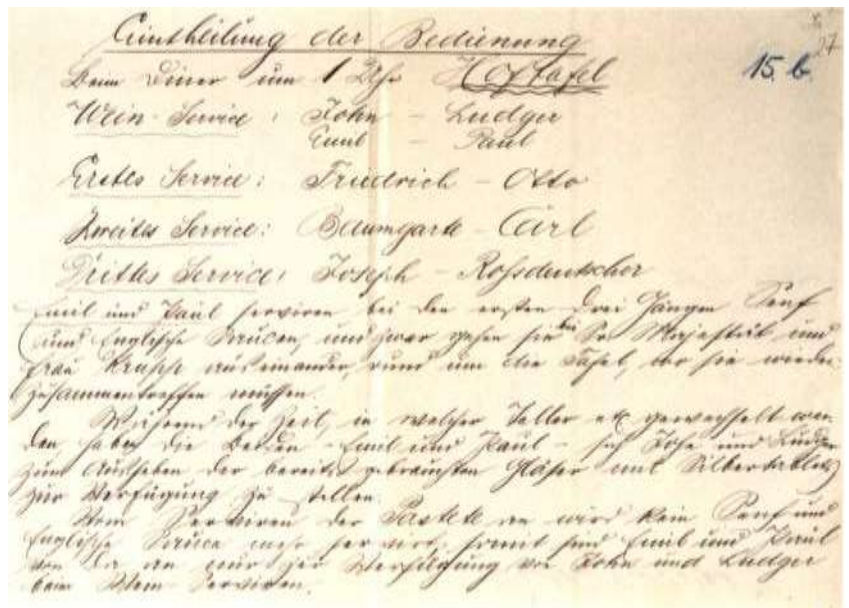 27
Eintheilung der Bedienung
beim Diner um 1 Uhr Hoftafel 15. b.
Wein-Service: John – Ludger
Emil – Paul
Erstes Service: Friedrich – Otto
Zweites Service: Baumgarte – Carl
Drittes Service: Joseph – Rossdeutscher
Emil und Paul serviren bei den ersten drei Gängen Senf
und Englische Saucen, und zwar gehen sie bei Sr. Majestät und
Frau Krupp auseinander, rund um die Tafel, wo sie wieder
zusammentreffen müssen.
Während der Zeit, in welcher Teller etc gewechselt wer-
den, haben die Beiden – Emil und Paul – sich John und Ludger
zum Ausheben der bereits gebrauchten Gläser mit Silbertabletts
zur Verfügung zu stellen.
Vom Serviren der Pastete an wird kein Senf und
Englische Sauce mehr servirt, somit sind Emil und Paul
von da an nur zur Verfügung von John und Ludger
beim Wein Serviren.